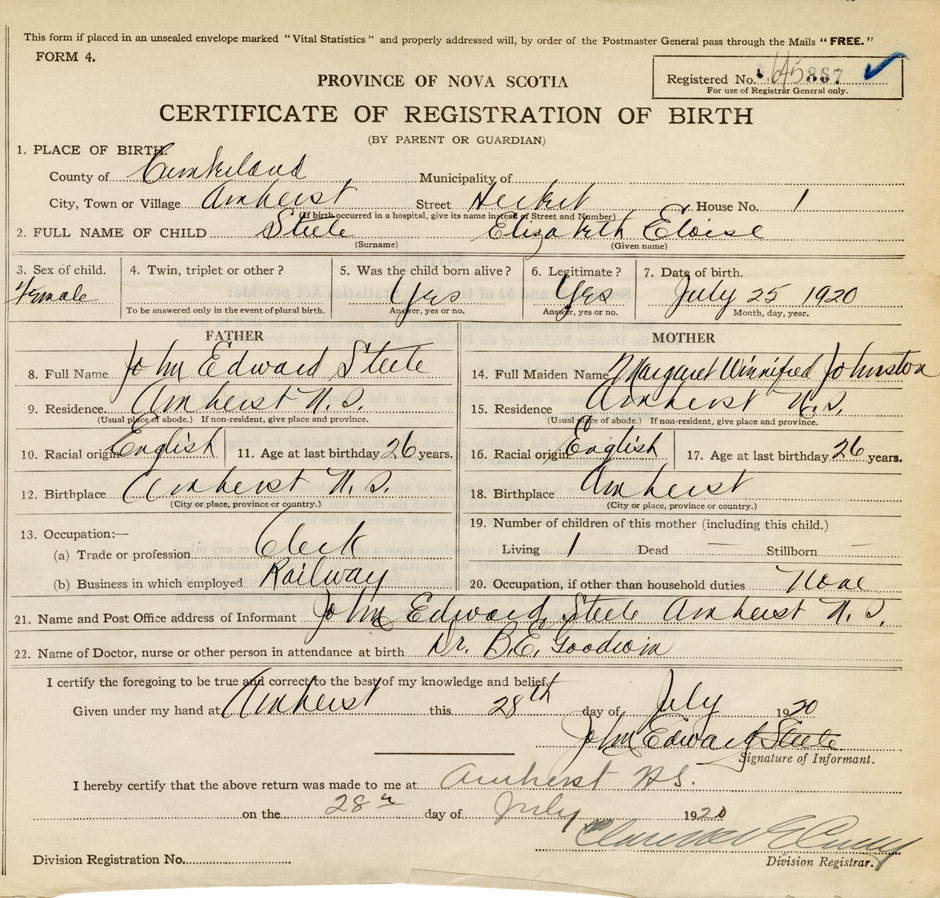 This form if placed in an unsealed envelope marked "Vital Statistics" and properly addressed will, by order of the Postmaster General pass through the Mails "FREE."
FORM 4.
PROVINCE OF NOVA SCOTIA
Registered No. 867
For use of Registrar General only.
CERTIFICATE OF REGISTRATION OF BIRTH
(BY PARENT OR GUARDIAN)
1. PLACE OF BIRTH.
County of Cumberland Municipality of
City, Town or Village Amherst Street Herbert House No. 1
(If birth occurred in a hospital, give its name instead of Street and Number)
2. FULL NAME OF CHILD Steele Elizabeth Eloise
(Surname) (Given name)
3. Sex of child. 4. Twin, triplet or other? 5. Was the child born alive? 6. Legitimate? 7. Date of birth.
Female Yes Yes July 25 1920
To be answered only in the event of plural birth. Answer, yes or no. Answer, yes or no. Month, day, year.
FATHER MOTHER
8. Full Name John Edward Steele 14. Full Maiden Name Margaret Winnifred Johnston
9. Residence Amherst N.S. 15. Residence Amherst N.S.
(Usual place of abode.) If non-resident, give place and province. (Usual place of abode.) If non-resident, give place and province.
10. Racial origin English 11. Age at last birthday 26 years. 16. Racial origin English 17. Age at last birthday 26 years.
12. Birthplace Amherst N.S. 18. Birthplace Amherst
(City or place, province or country.) (City or place, province or country.)
13. Occupation:— 19. Number of children of this mother (including this child.)
(a) Trade or profession Clerk Living 1 Dead — Stillborn —
(b) Business in which employed Railway 20. Occupation, if other than household duties None
21. Name and Post Office address of Informant John Edward Steele Amherst N.S.
22. Name of Doctor, nurse or other person in attendance at birth Dr. B.E. Goodwin
I certify the foregoing to be true and correct to the best of my knowledge and belief.
Given under my hand at Amherst this 28th day of July 1920
John Edward Steele
Signature of Informant.
I hereby certify that the above return was made to me at Amherst N.S.
on the 28th day of July 1920
Division Registration No.
Division Registrar.